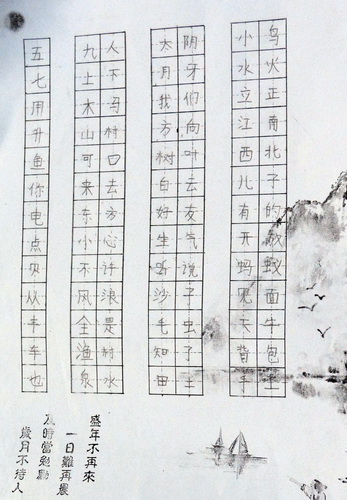 五七用升鱼你电点贝从丰车也
九土木山可来东小不风全渔泉
人下马村口去方心许浪是村水
太月我方树白好生听沙毛知田
阴牙们向叶云友气说子虫了土
小水立江西儿有开蚂见天背手
鸟火正南北子的蚁面牛包
盛年不再來
一日難再晨
及時當勉勵
歲月不待人